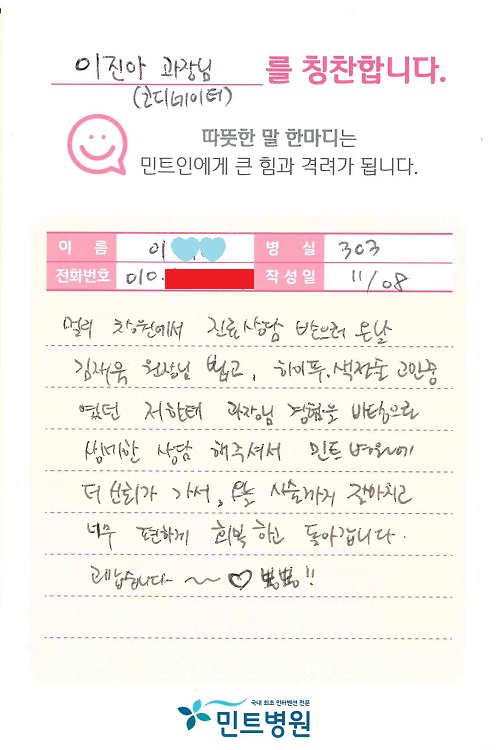 이진아 과장님 를 칭찬합니다.
(코디네이터)
따뜻한 말 한마디는
민트인에게 큰 힘과 격려가 됩니다.
이 름 이 병 실 303
전화번호 010. 작성일 11/08
멀리 창원에서 진료상담 받으러 온날
김재욱 원장님 뵙고, 하이푸.색전술 고민중
였던 저한테 과장님 경험을 바탕으로
세한 상담 해주셔서 민트병원에
더 신뢰가 가서, 오늘 시술까지 잘마치고
너무 편하게 회복하고 돌아갑니다.
고맙습니다~ ~~ ♡ 뿅뿅!!
국내 최초 인터벤션 전문
민트병원